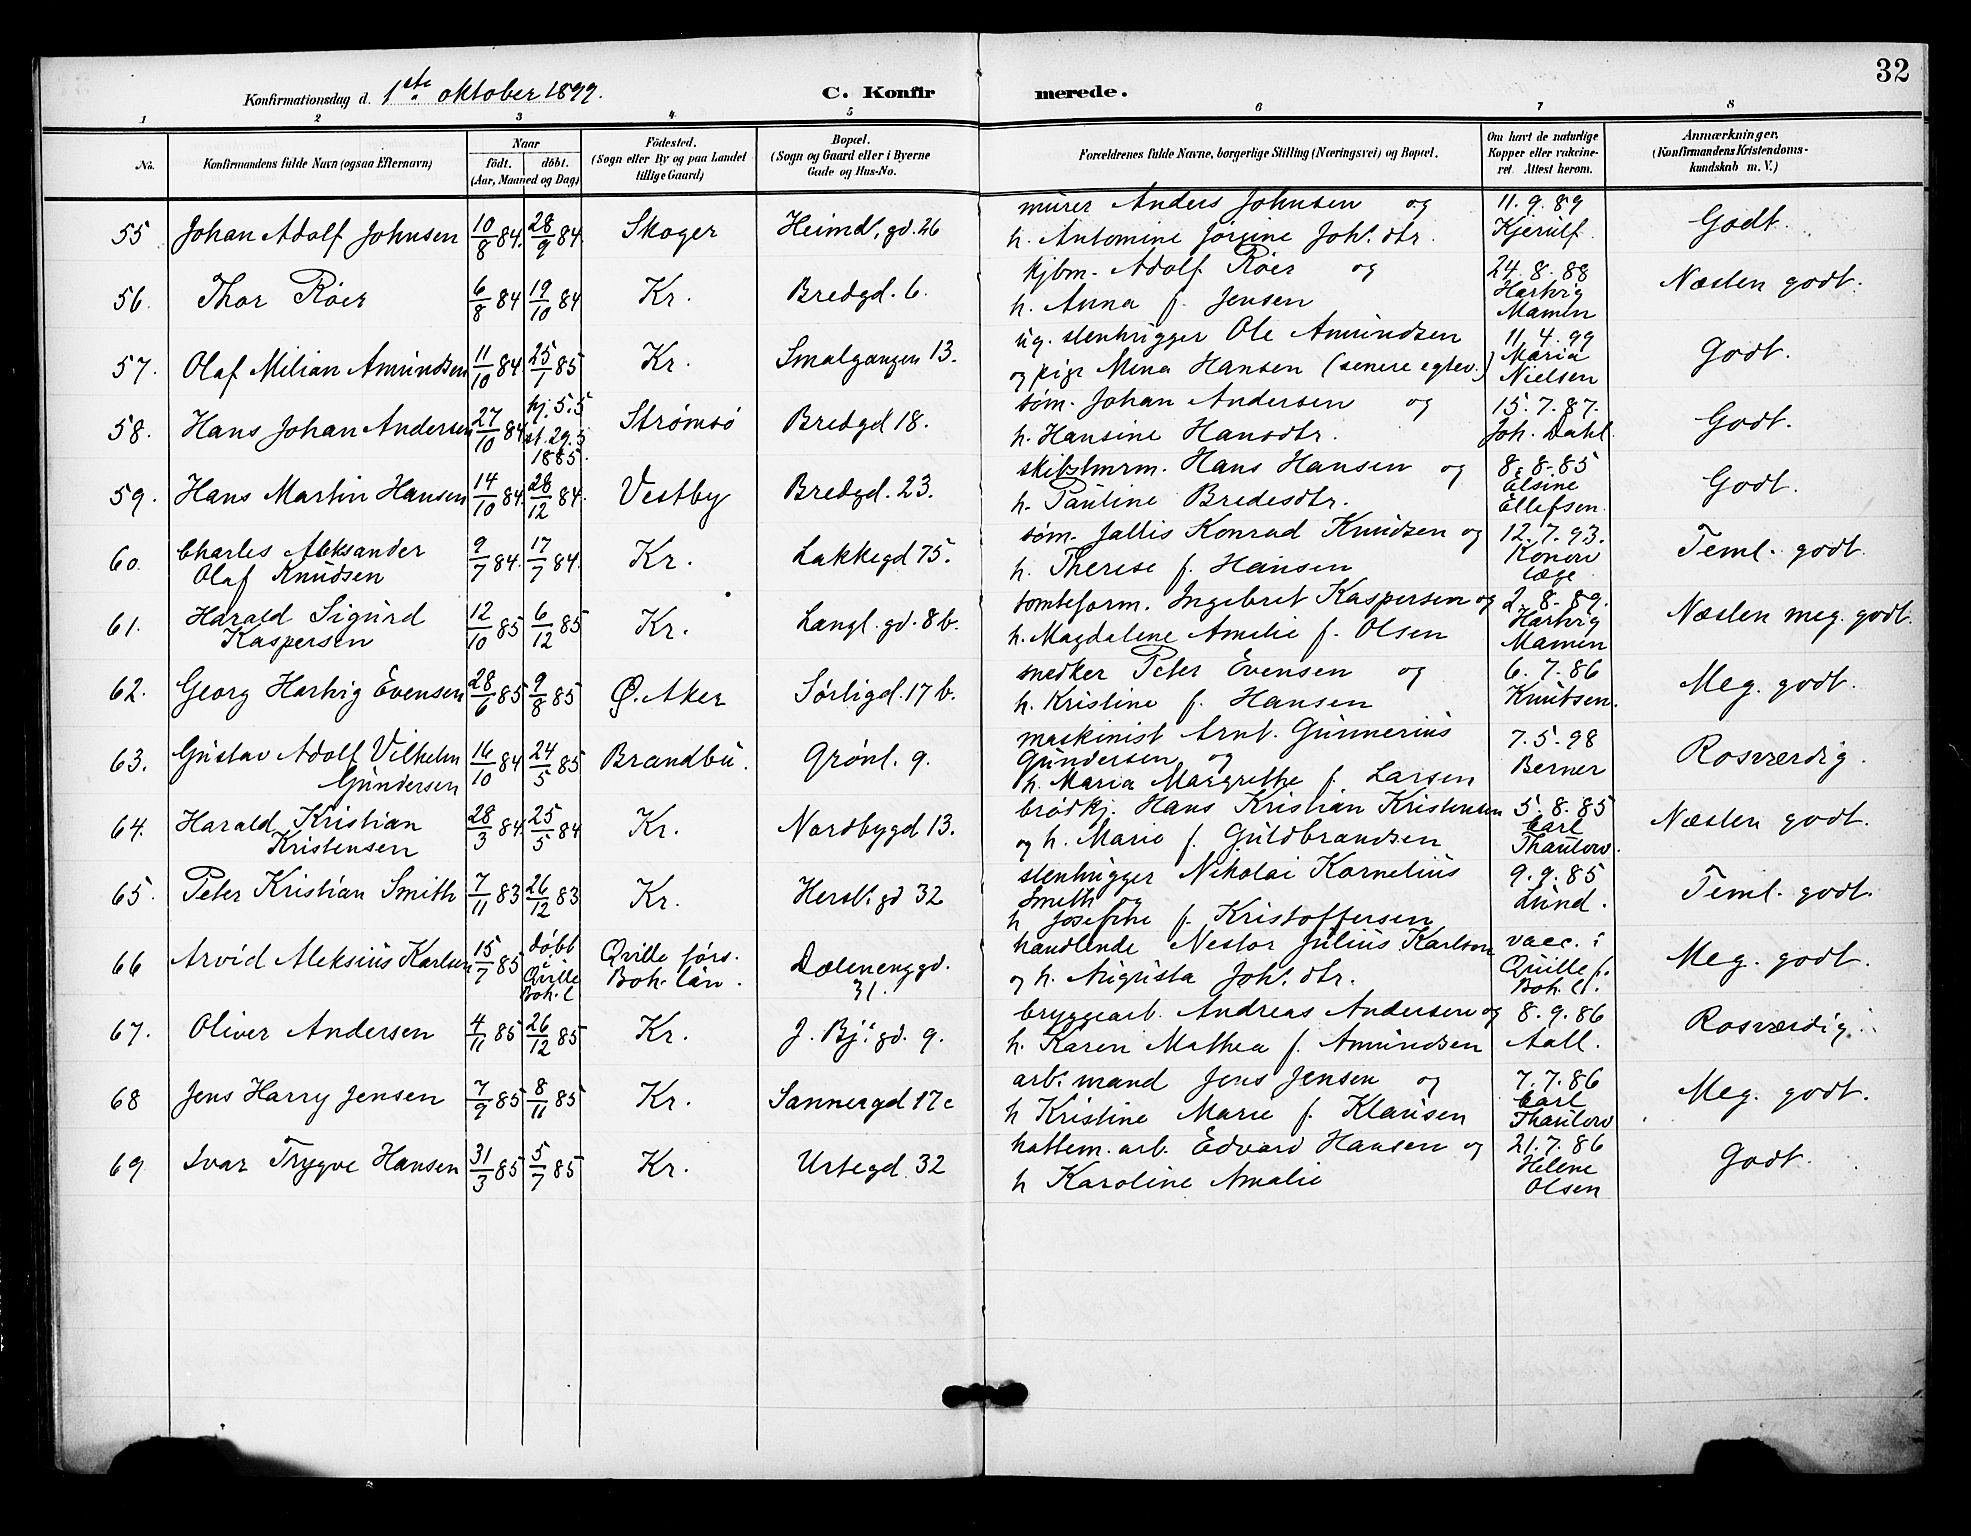 32
Konfirmationsdag d. 1ste oktober 1899.
C. Konfirmerede.
1 2 3 4 5 6 7 8
No.
Konfirmandens fulde Navn (ogsaa Efternavn)
Naar
födt. döbt.
(Aar, Maaned og Dag)
Födested.
(Sogn eller By og paa Landet
tillige Gaard)
Bopæl.
(Sogn og Gaard eller i Byerne
Gade og Hus-No.
Forældrenes fulde Navne, borgerlige Stilling (Næringsvei) og Bopæl.
Om havt de naturlige
Kopper eller vakcine-
ret. Attest herom.
Anmærkninger.
(Konfirmandens Kristendoms-
kundskab m. V.)
55 Johan Adolf Johnsen 10/8 84. 28/9 84. Skoger Heimd. gd. 26 murer Anders Johnsen og
h. Antomine Jorgine Joh. dtr. 11.9.89
Kjerulf Godt.
56. Thor Röer 6/8 84 19/10 84 Kr. Bredgd. 6. kjbm. Adolf Röer og
h. Anna f. Jensen 24.8.88
Hartvig
Mamen Næsten godt.
57. Olaf Milian Amundsen 11/10 84 25/1 85 Kr. Smalgangen 13. ug. stenhugger Ole Amundsen
og pige Mina Hansen (senere egtev.) 11.4.99
Maria
Nielsen Godt.
58. Hans Johan Andersen 27/10 84 hj. 5.5
st. 29.5
1885. Strømsö Bredgd 18. söm. Johan Andersen og
h. Hansine Hansdtr. 15.7.87.
Joh. Dahl. Godt.
59. Hans Martin Hansen 14/10 84. 28/12 84. Vestby Bredgd. 23. skibstmrm. Hans Hansen og
h. Pauline Bredesdtr. 8.8.85
Elsine
Ellefsen Godt.
60. Charles Aleksander
Olaf Knudsen 9/7 84. 17/7 84. Kr. Lakkegd 75. söm. Jallis Konrad Knudsen og
h. Therese f. Hansen 12.7.93.
Konow
læge Teml. godt.
61. Harald Sigurd
Kaspersen 12/10 85 6/12 85 Kr. Langl. gd. 8 b. tomteform. Ingebret Kaspersen og
h. Magdalene Amalie f. Olsen 2.8.89.
Hartvig
Mamen Næsten meg. godt.
62. Georg Hartvig Evensen 28/6 85 9/8 85 Ø. Aker Sørligd. 17 b. snedker Peter Evensen og
h. Kristine f. Hansen 6.7.86
Knutsen. Meg. godt.
63. Gustav Adolf Vilhelm
Gundersen 16/10 84 24/5 85 Brandbu. Grønl. 9. maskinist Arnt. Gunnerius
Gundersen og
h. Maria Margrethe f. Larsen 7.5.98
Berner Rosværdig.
64. Harald Kristian
Kristensen 28/3 84. 25/5 84 Kr. Nordbygd 13. brödkj. Hans Kristian Kristensen
og h. Marie f. Guldbrandsen 5.8.85
Carl
Thaulow. Næsten godt.
65. Peter Kristian Smith 7/11 83 26/12 83 Kr. Hersl. gd 32 stenhugger Nikolai Kornelius
Smith og
h Josefine f. Kristoffersen 9.9.85
Lund. Teml. godt.
66 Arvid Aleksius Karlsen 15/7 85 döbt
i Qville
Boh. l Qville förs.
Boh. län. Dælenenggd.
31. handlende Nestor Julius Karlson
og h. Augusta Joh. dtr. vacc. i
Qville f.
Boh. l. Meg. godt.
67. Oliver Andersen 4/11 85 26/12 85 Kr. J. Bj. gd. 9. bryggearb. Andreas Andersen og
h. Karen Mathea f. Amundsen 8.9.86
Aall. Rosværdig.
68 Jens Harry Jensen 7/9 85 8/11 85 Kr. Sannergd 17c arb. mand Jens Jensen og
h Kristine Marie f. Klausen 7.7.86
Carl
Thaulow Meg. godt.
69 Ivar Trygve Hansen 31/3 85 5/7 85 Kr. Urtegd. 32 hattem. arb. Edvard Hansen og
h Karoline Amalie 21.7.86
Helene
Olsen Godt.